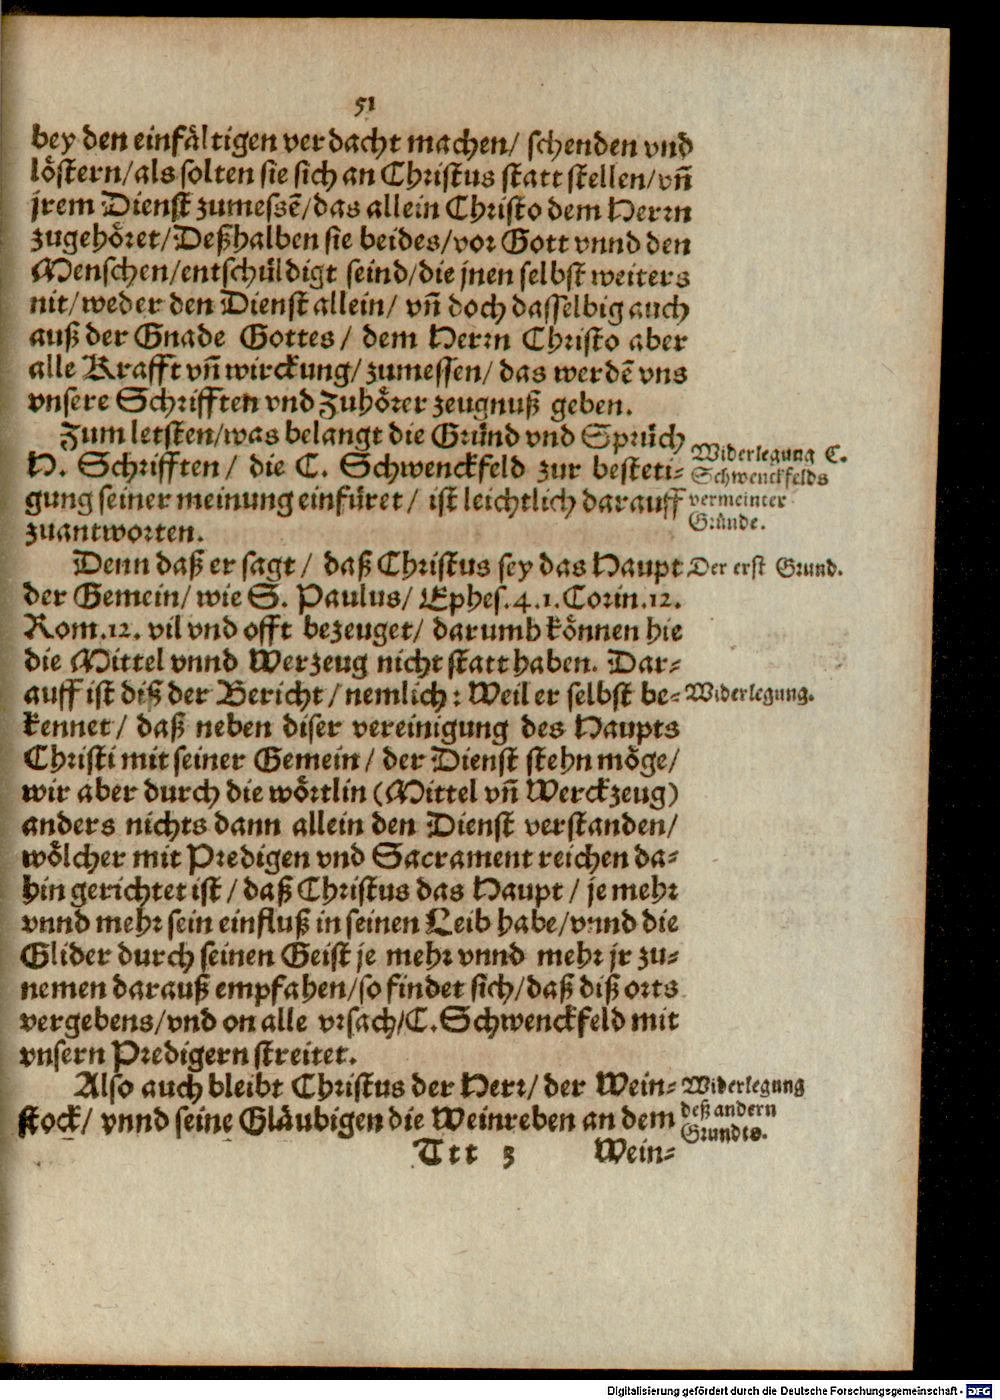 51
bey den einfältigen verdacht machen/ schenden vnd
löstern/als solten sie sich an Christus statt stellen/vñ
jrem Dienst zumessẽ/das allein Christo dem Herrn
zugehöret/Deßhalben sie beides/vor Gott vnnd den
Menschen/entschüldigt seind/die jnen selbst weiters
nit/weder den Dienst allein/ vñ doch dasselbig auch
auß der Gnade Gottes/ dem Herrn Christo aber
alle Krafft vñ wirckung/ zumessen/ das werdẽ vns
vnsere Schrifften vnd Zuhörer zeugnuß geben.
Zum letsten/was belangt die Gründ vnd Sprüch
H. Schrifften/ die C. Schwenckfeld zur besteti-
gung seiner meinung einfüret/ ist leichtlich darauff
zuantworten.
Widerlegung C.
Schwenckfelds
vermeinter
Gründe.
Denn daß er sagt/ daß Christus sey das Haupt
der Gemein/ wie S. Paulus/ Ephes.4.1.Corin.12.
Rom.12. vil vnd offt bezeuget/ darumb können hie
die Mittel vnnd Werzeug nicht statt haben. Dar-
auff ist diß der Bericht/ nemlich: Weil er selbst be-
kennet/ daß neben diser vereinigung des Haupts
Christi mit seiner Gemein/ der Dienst stehn möge/
wir aber durch die wörtlin (Mittel vñ Werckzeug)
anders nichts dann allein den Dienst verstanden/
wölcher mit Predigen vnd Sacrament reichen da-
hin gerichtet ist/ daß Christus das Haupt/ je mehr
vnnd mehr sein einfluß in seinen Leib habe/vnnd die
Glider durch seinen Geist je mehr vnnd mehr jr zu-
nemen darauß empfahen/so findet sich/daß diß orts
vergebens/vnd on alle vrsach/C.Schwenckfeld mit
vnsern Predigern streitet.
Der erst Grund.
Widerlegung.
Also auch bleibt Christus der Herr/ der Wein-
stock/ vnnd seine Gläubigen die Weinreben an dem
Widerlegung
deß andern
Grundts.
Ttt 3
Wein-
Digitalisierung gefördert durch die Deutsche Forschungsgemeinschaft - DFG